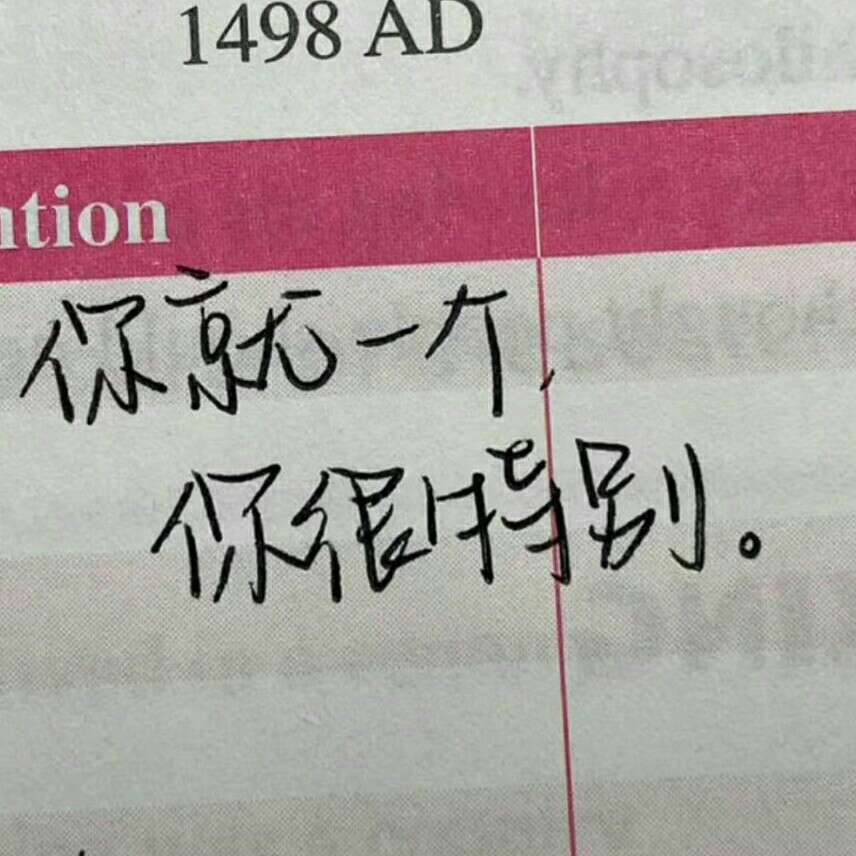 1498 AD
ntion
你就一个,
你很特别。